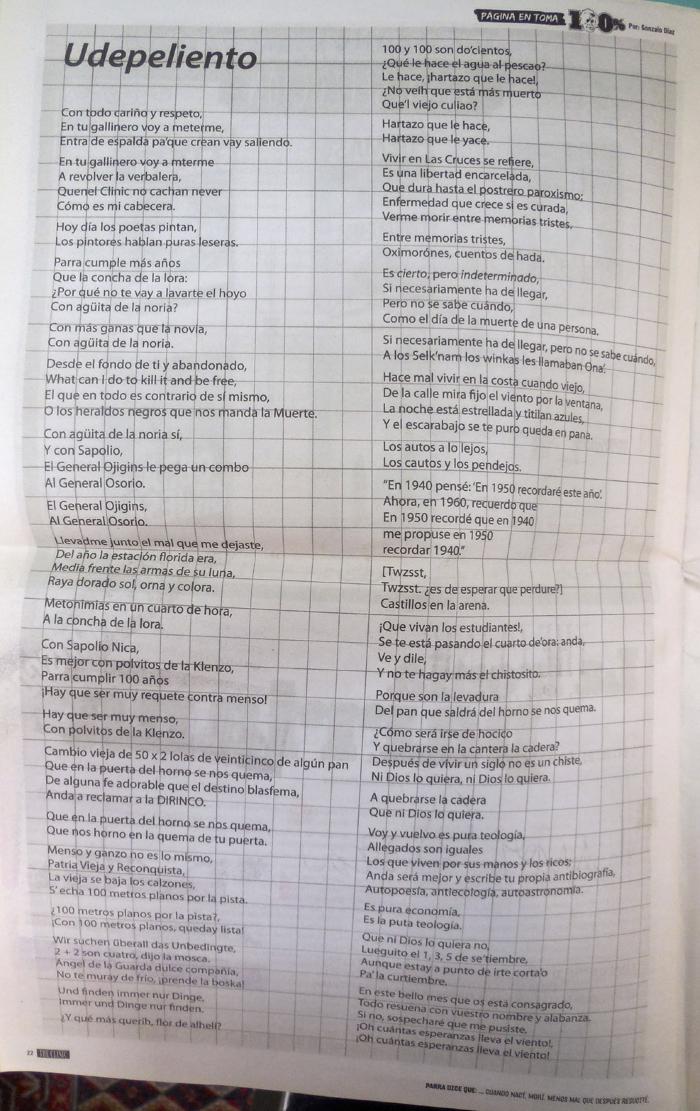 PÁGINA EN TOMA 100% Por: Gonzalo Díaz
Udepeliento
Con todo cariño y respeto,
En tu gallinero voy a meterme,
Entra de espalda pa'que crean vay saliendo.
En tu gallinero voy a mterme
A revolver la verbalera,
Quenel Clinic no cachan never
Cómo es mi cabecera.
Hoy día los poetas pintan,
Los pintores hablan puras leseras.
Parra cumple más años
Que la concha de la lora:
¿Por qué no te vay a lavarte el hoyo
Con agüita de la noria?
Con más ganas que la novia,
Con agüita de la noria.
Desde el fondo de ti y abandonado,
What can I do to kill it and be free,
El que en todo es contrario de sí mismo,
O los heraldos negros que nos manda la Muerte.
Con agüita de la noria sí,
Y con Sapolio,
El General Ojigins le pega un combo
Al General Osorio.
El General Ojigins,
Al General Osorio.
Llevadme junto el mal que me dejaste,
Del año la estación florida era,
Media frente las armas de su luna,
Raya dorado sol, orna y colora.
Metonimias en un cuarto de hora,
A la concha de la lora.
Con Sapolio Nica,
Es mejor con polvitos de la Klenzo,
Parra cumplir 100 años
¡Hay que ser muy requete contra menso!
Hay que ser muy menso,
Con polvitos de la Klenzo.
Cambio vieja de 50 x 2 lolas de veinticinco de algún pan
Que en la puerta del horno se nos quema,
De alguna fe adorable que el destino blasfema,
Anda a reclamar a la DIRINCO.
Que en la puerta del horno se nos quema,
Que nos horno en la quema de tu puerta.
Menso y ganzo no es lo mismo,
Patria Vieja y Reconquista,
La vieja se baja los calzones,
S'echa 100 metros planos por la pista.
¿100 metros planos por la pista?,
¡Con 100 metros planos, queday lista!
Wir suchen überall das Unbedingte,
2 + 2 son cuatro, dijo la mosca.
Ángel de la Guarda dulce compañía,
No te muray de frío, ¡prende la boska!
Und finden immer nur Dinge,
Immer und Dinge nur finden.
¿Y qué más querih, flor de alhelí?
100 y 100 son do'cientos,
¿Qué le hace el agua al pescao?
Le hace, ¡hartazo que le hace!,
¿No veíh que está más muerto
Que'l viejo culiao?
Hartazo que le hace,
Hartazo que le yace.
Vivir en Las Cruces se refiere,
Es una libertad encarcelada,
Que dura hasta el postrero paroxismo;
Enfermedad que crece si es curada,
Verme morir entre memorias tristes.
Entre memorias tristes,
Oximorónes, cuentos de hada.
Es cierto, pero indeterminado,
Si necesariamente ha de llegar,
Pero no se sabe cuándo,
Como el día de la muerte de una persona.
Si necesariamente ha de llegar, pero no se sabe cuándo,
A los Selk'nam los winkas les llamaban Ona'.
Hace mal vivir en la costa cuando viejo,
De la calle mira fijo el viento por la ventana,
La noche está estrellada y titilan azules,
Y el escarabajo se te puro queda en pana.
Los autos a lo lejos,
Los cautos y los pendejos.
"En 1940 pensé: 'En 1950 recordaré este año'.
Ahora, en 1960, recuerdo que
En 1950 recordé que en 1940
me propuse en 1950
recordar 1940."
[Twzsst,
Twzsst. ¿es de esperar que perdure?]
Castillos en la arena.
¡Que vivan los estudiantes!,
Se te está pasando el cuarto de'ora: anda,
Ve y dile,
Y no te hagay más el chistosito.
Porque son la levadura
Del pan que saldrá del horno se nos quema.
¿Cómo será irse de hocico
Y quebrarse en la cantera la cadera?
Después de vivir un siglo no es un chiste,
Ni Dios lo quiera, ni Dios lo quiera.
A quebrarse la cadera
Que ni Dios lo quiera.
Voy y vuelvo es pura teología,
Allegados son iguales
Los que viven por sus manos y los ricos;
Anda será mejor y escribe tu propia antibiografía,
Autopoesía, antiecología, autoastronomía.
Es pura economía,
Es la puta teología.
Que ni Dios lo quiera no,
Lueguito el 1, 3, 5 de se'tiembre,
Aunque estay a punto de irte corta'o
Pa' la curtiembre.
En este bello mes que os está consagrado,
Todo resuena con vuestro nombre y alabanza.
Si no, sospecharé que me pusiste,
¡Oh cuántas esperanzas lleva el viento!,
¡Oh cuántas esperanzas lleva el viento!
22 THE CLINIC
PARRA DICE QUE: ... CUANDO NACÍ, MORÍ. MENOS MAL QUE DESPUÉS RESUCITÉ.